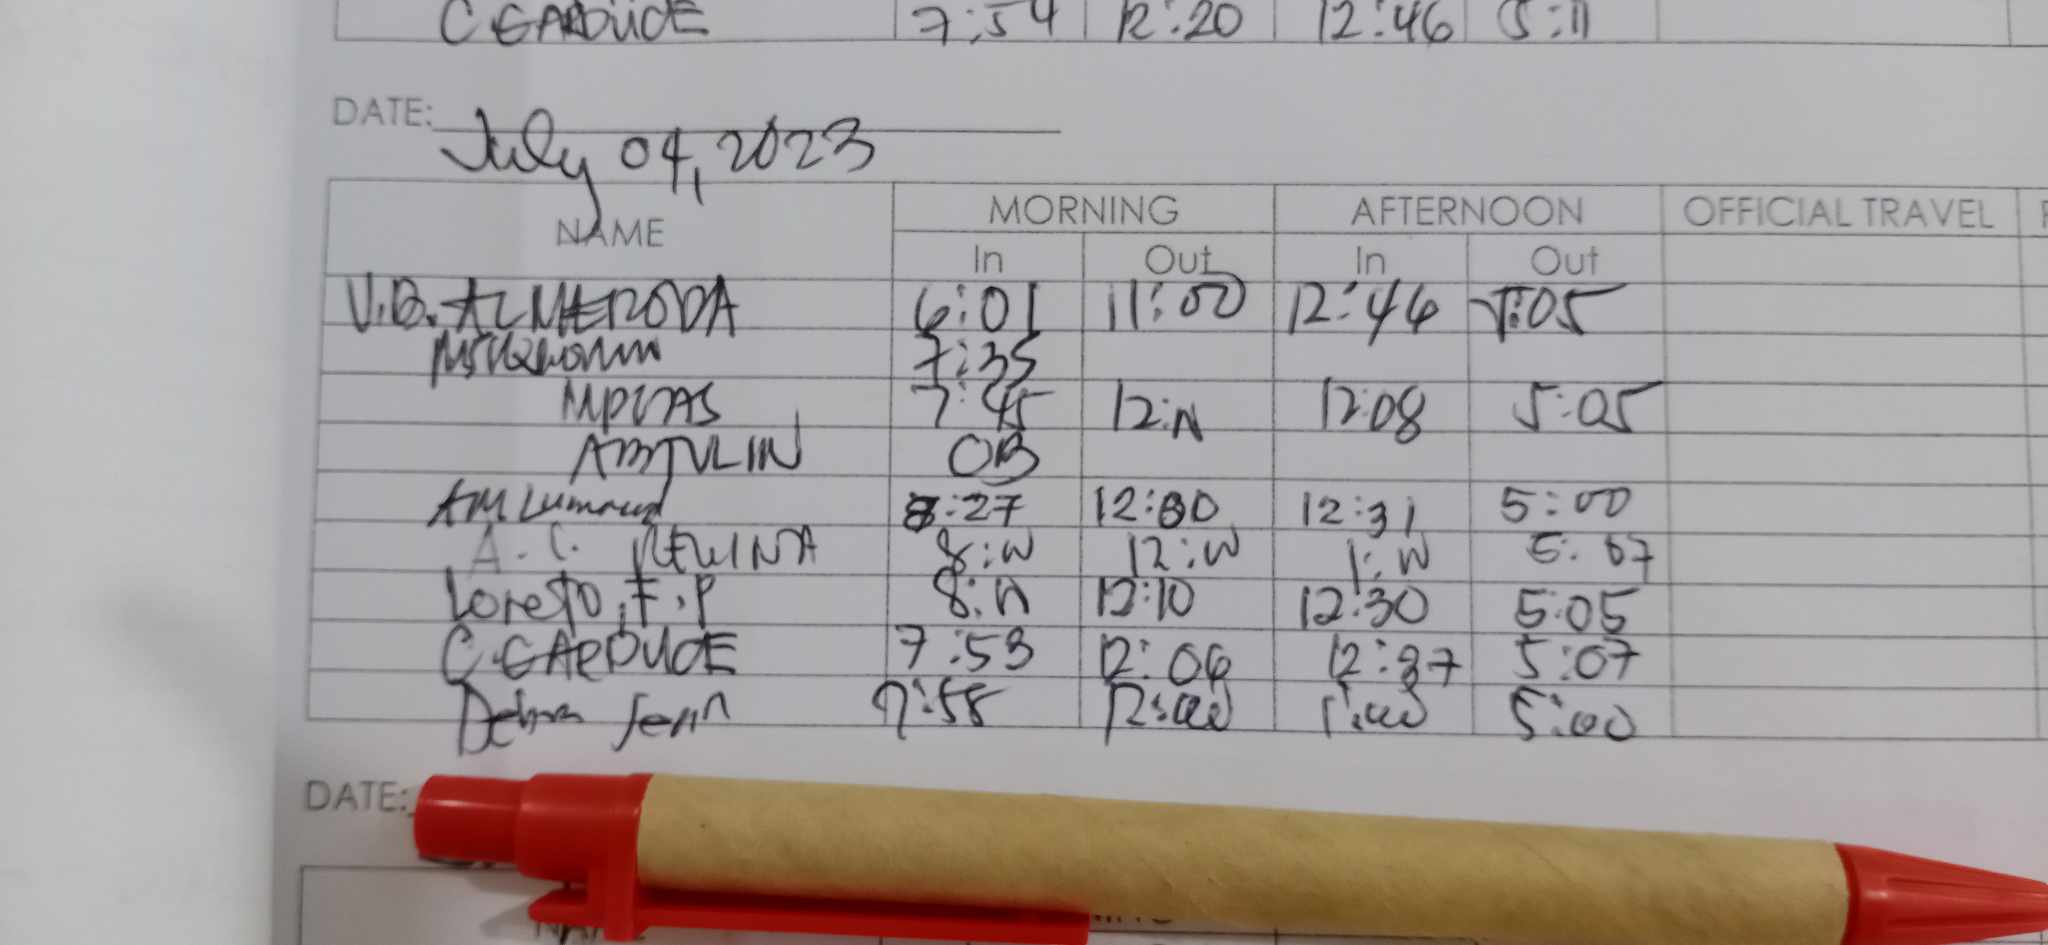 C GARDUCE 7:54 12:20 12:46 5:11
DATE: July 04, 2023
NAME MORNING AFTERNOON OFFICIAL TRAVEL
In Out In Out
V.B. ALMERODA 6:01 11:00 12:46 5:05
7:35
7:45 12:N 12:08 5:05
OB
AM 8:27 12:00 12:31 5:00
A. C. REWINA 8:W 12:W 1:W 5:07
Loreto, F.P 8:N 12:10 12:30 5:05
C. GARDUCE 7:53 12:06 12:37 5:07
Debra Jenn 7:58 12:00 1:00 5:00
DATE:
NAME